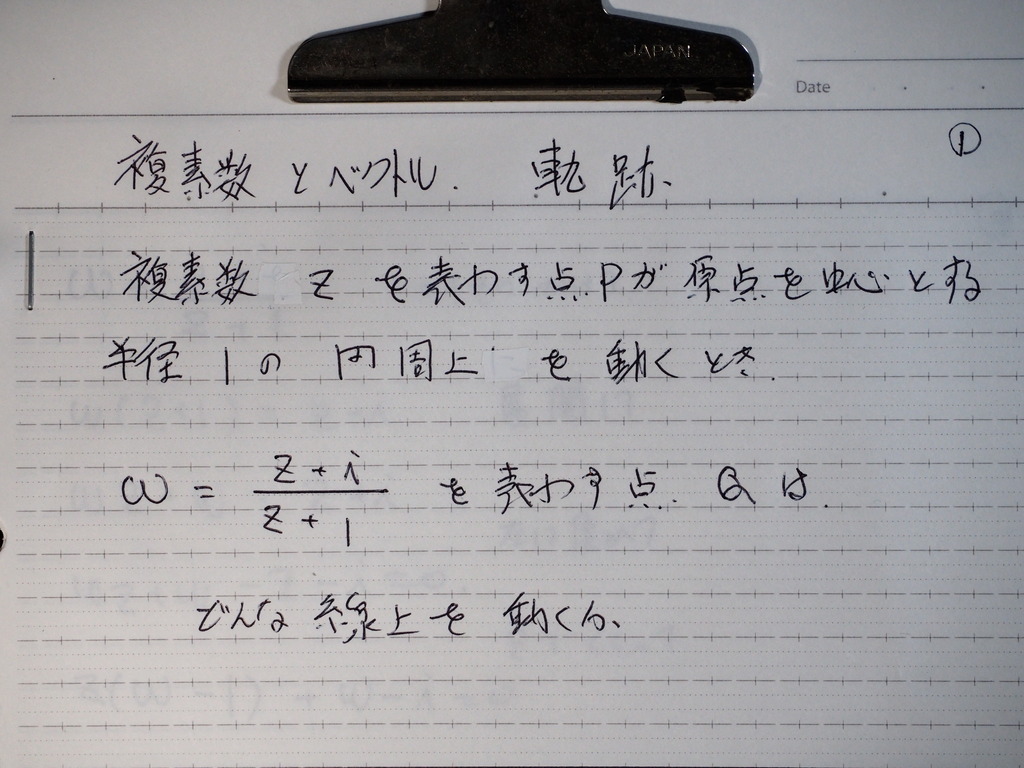 JAPAN
Date
①
複素数とベクトル. 軌跡、
複素数 z を表わす点Pが原点を中心とする
半径 1の 円周上 を動くとき.
ω = \frac{z+i}{z+1} を表わす点. Qは.
どんな線上を動くか、